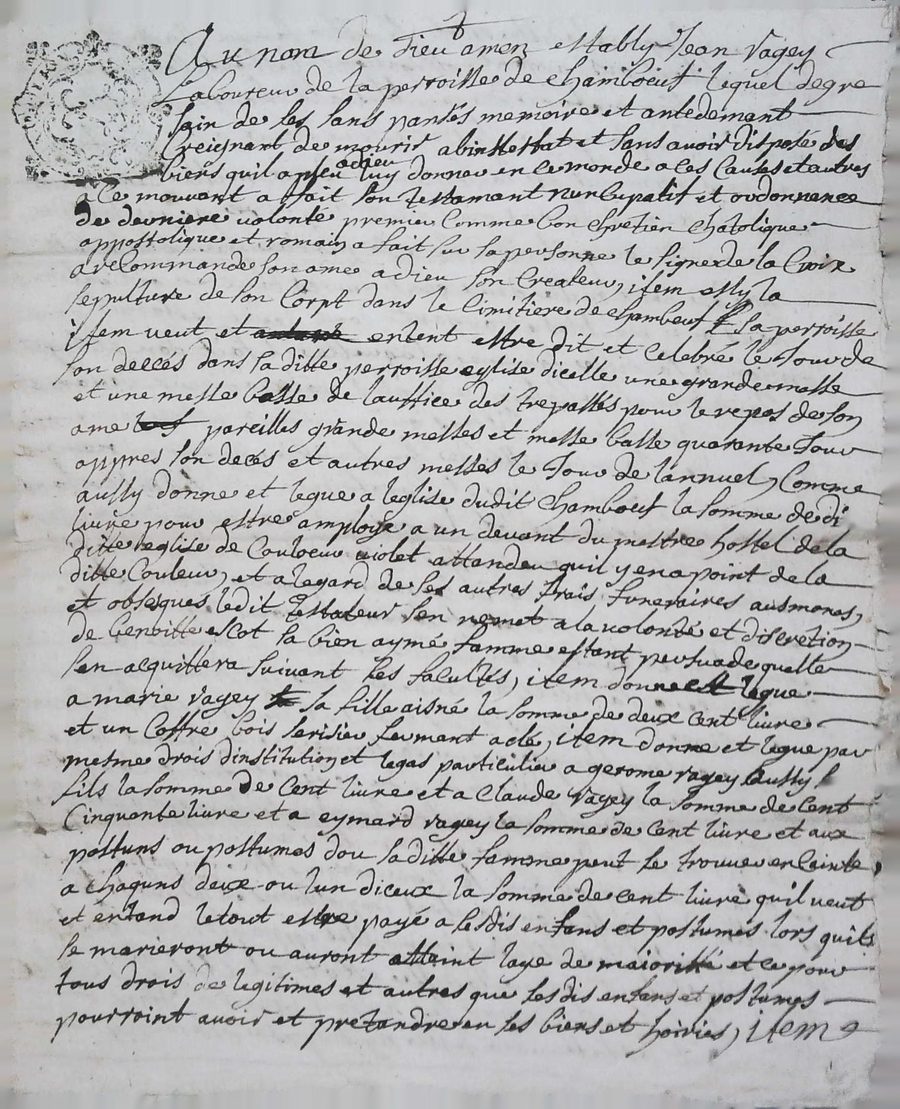 Au nom de dieu amen estably Jean vagey
Laboureur de la perroisse de Chamboeuf lequel de gre
sain de ses sans pansés memoire et antendemant
Creignant de mourir abinttestat et sans avoir disposés des
biens quil a pleu a dieu luy donner en ce monde a ces Causes et autres
a ce mouvant a fait son testament nuncupatif et ordonnance
de derniere volonté premier Comme bon Chretien Chatolique
appostolique et romain a fait sur sa personne le signe de la Croix
a recommandé son ame a dieu son Createur, item eslly la
sepulture de son Corpt dans le Cimitiere de Chambeuf sa perroisse
item veut et entent estre dit et celebré le Jour de
son decés dans sa ditte perroisse eglise dicelle une grande messe
et une messe basse de lauffice des trepassés pour le repos de son
ame pareilles grande messes et messe basse quarante Jour
appres son decés et autres messes le Jour de lannuel, Comme
aussy donne et legue a leglise dudit Chamboeuf la somme de di
livre pour estre amployé a un devant du mestre hostel de la
ditte eglise de Couloeur violet attandeu quil y en a point de la
ditte Couleur, et a legard de ses autres frais funeraires ausmones,
et obseques ledit testateur sen remet a la volonté et discretion
de benoitte escot sa bien aymé famme estant persuadé quelle
sen acquittera suivant ses facultés, item donne et legue
a marie vagey sa fille aisné la somme de deux cent livre
et un Coffre bois serisier fermant a clé, item donne et legue par
mesme drois dinstitution et legas particulier a gerome vagey aussy
fils la somme de Cent livre et a Claude vagey la somme de cent
Cinquante livre et a eymard vagey la somme de cent livre et aux
postuns ou postumes dou sa ditte famme peut se trouver enceinte,
a chaguns deux ou lun diceux la somme de cent livre quil veut
et entand le tout estre payé a sesdis enfans et postumes lors quils
se marieront ou auront attaint lage de maioritté et ce pour
tous drois de legitimes et autres que sesdis enfans et postumes
pourroint avoir et pretandre en ses biens et hoiries, item